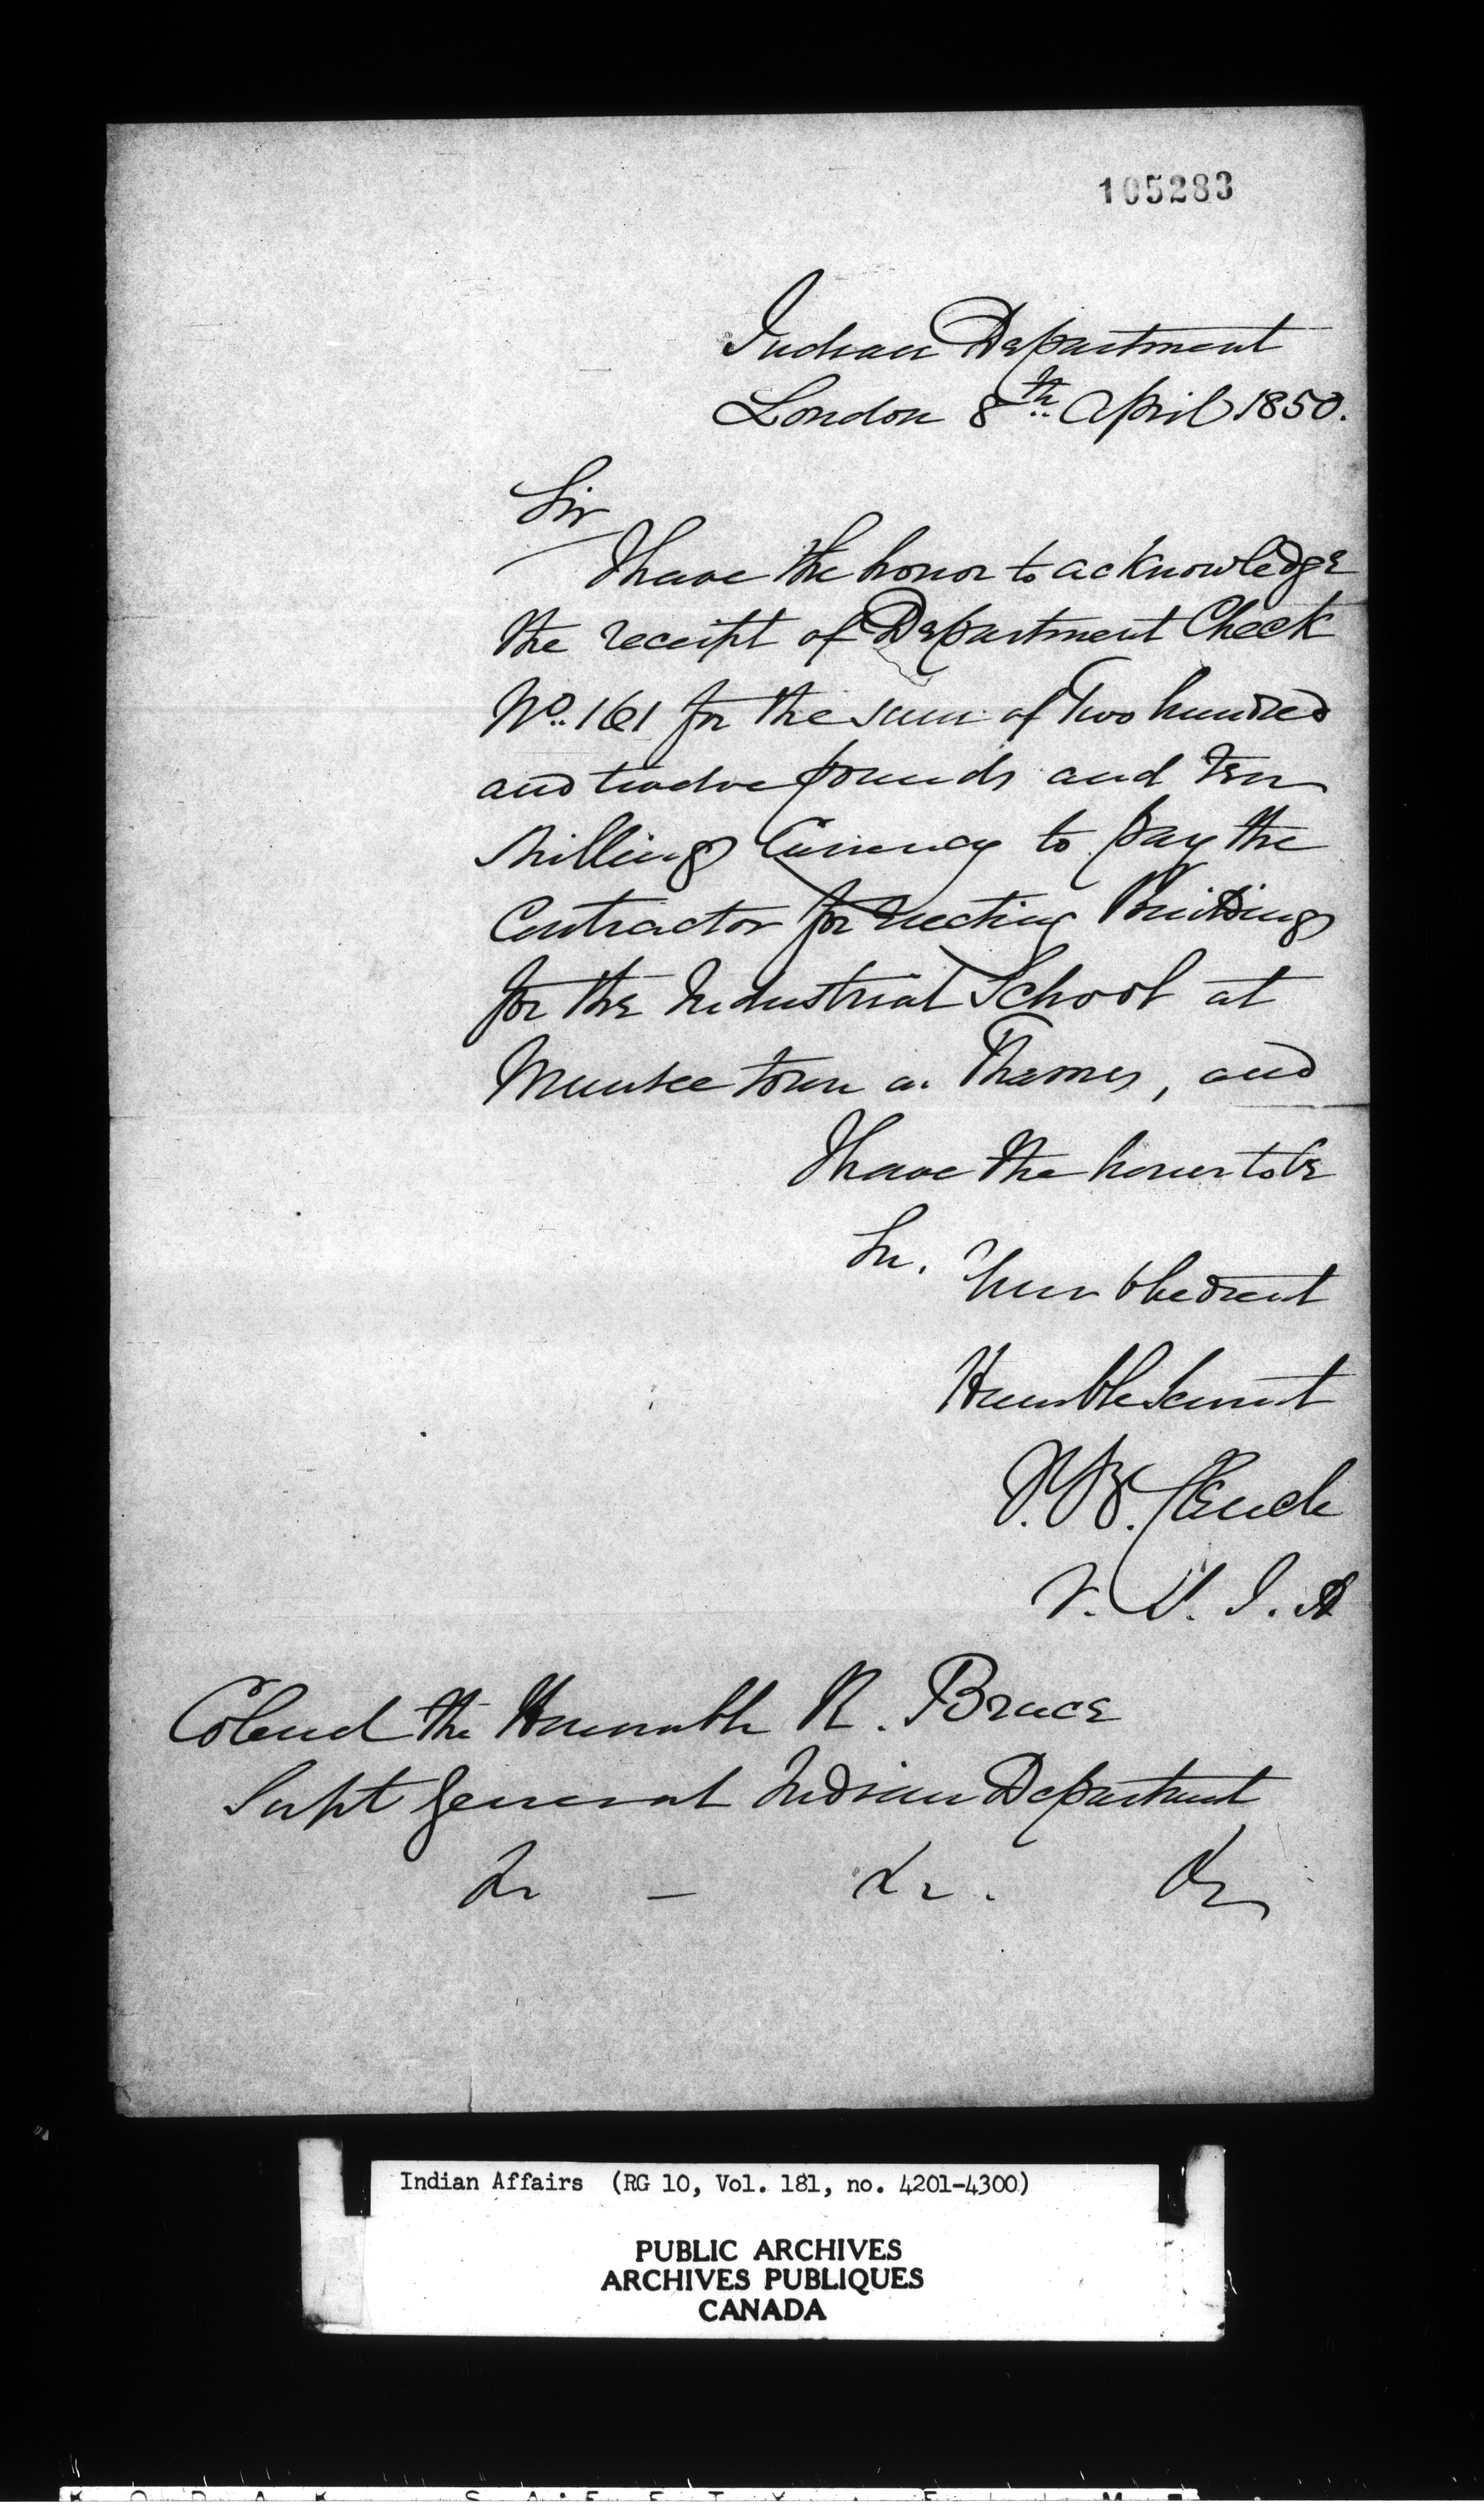 105283
Indian Department
London 8th April 1850.
Sir
I have the honor to acknowledge
the receipt of Department Check
No. 161 for the sum of Two hundred
and twelve pounds and Ten
shillings Currency to pay the
Contractor for erecting Buildings
for the Industrial School at
Munsee town on Thames, and
I have the honor to be
Sir,
Your obedient
Humble Servant
J. B. Clench
V. S. I. A
Colonel the Honorable R. Bruce
Supt General Indian Department
&c — &c. &c
Indian Affairs (RG 10, Vol. 181, no. 4201-4300)
PUBLIC ARCHIVES
ARCHIVES PUBLIQUES
CANADA